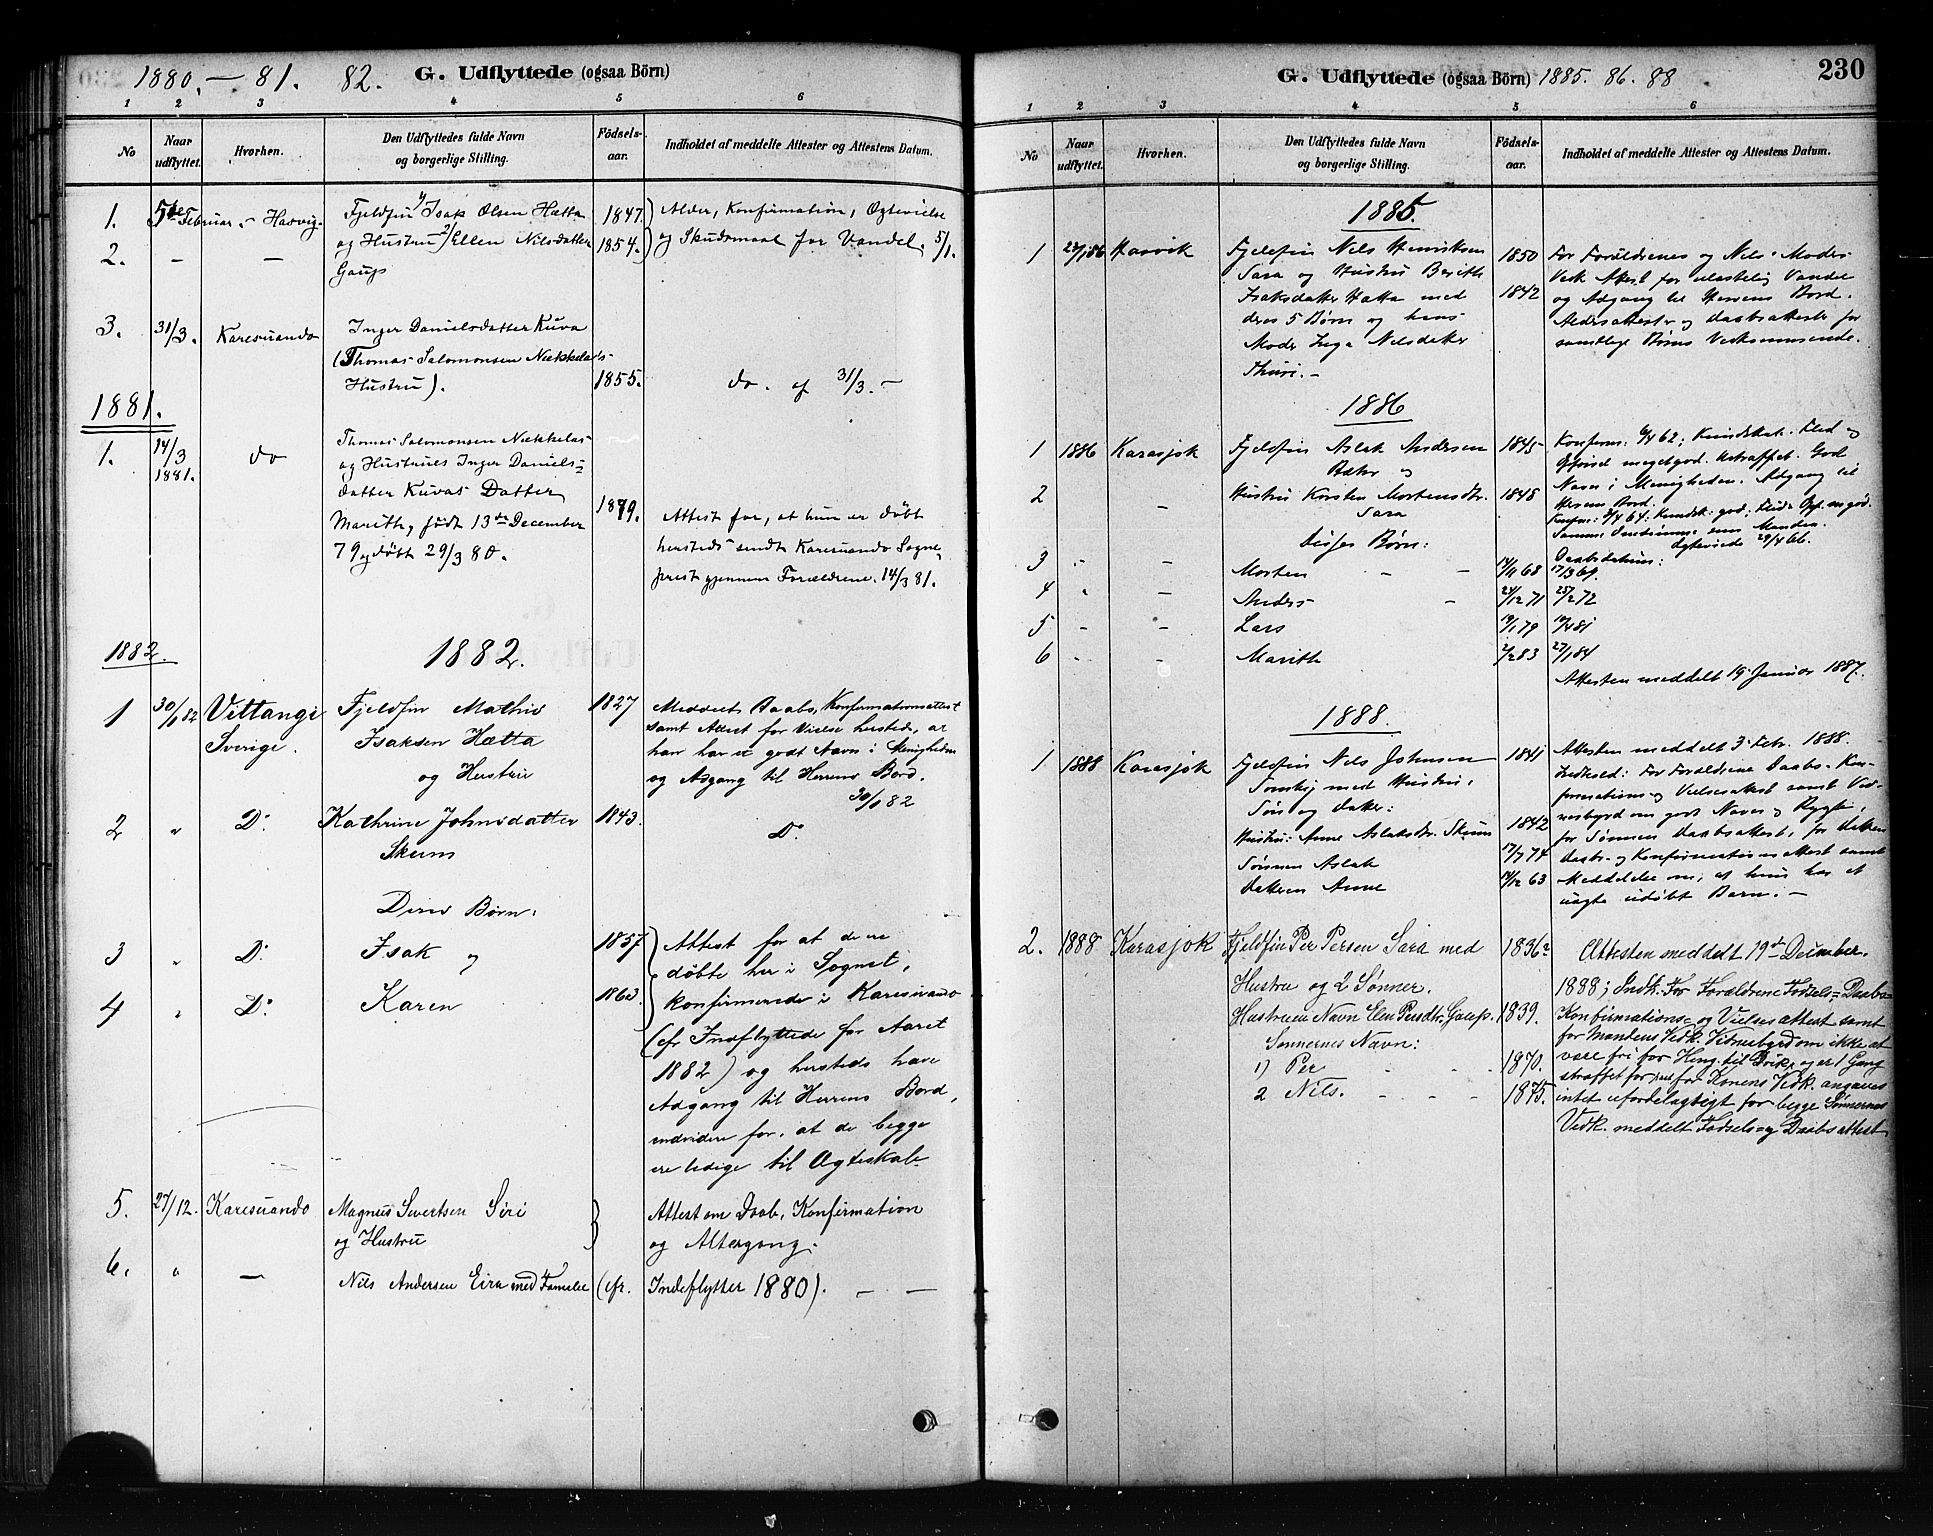 1880. — 81. 82. G. Udflyttede (ogsaa Börn)
1 2 3 4 5 6
No Naar udflyttet. Hvorhen. Den Udflyttedes fulde Navn og borgerlige Stilling. Födsels-aar. Indholdet af meddelte Attester og Attestens Datum.
1. 5te Februar. Hasvig. Fjeldfin 1/ Isak Olsen Hætta 1847. Alder, Konfirmation, Ægtevielse
2. — — og Hustru 2/ Ellen Nilsdatter 1854. og Skudsmaal for Vandel. 5/1.
Gaup
3. 31/3. Karesuando Inger Danielsdatter Kuva
(Thomas Salomonsen Nækkelas-
Hustru). 1855. do. af 31/3. —
1881.
1. 14/3 1881. do Thomas Salomonsen Nækkelas
og Hustrues Inger Daniels-
datter Kuvas Datter 1879.
Marith, født 13de December Attest for, at hun er døbt
79 og døbt 29/3 80. hersteds sendt Karesuando Sogne-
prest gjennem Forældrene. 14/3 81.
1882. 1882.
1 30/1 82 Vittangi Fjeldfin Mathis 1827 Meddelt Daabs, Konfirmationsattest
Sverige. Isaksen Hætta samt Attest for Vielse hersteds, at
og Hustru han har et godt Navn i Menigheden
og Adgang til Herrens Bord.
30/1 82
2 " Do Kathrine Johnsdatter 1843. Do
Skum
Deres Børn:
3 " Do Isak og 1857 Attest for at de ere
døbte her i Sognet,
4 " Do Karen 1863. konfirmerede i Karesuando
(cfr Indflyttede for Aaret
1882) og hersteds have
Adgang til Herrens Bord,
endvidere for, at de begge
ere ledige til Ægteskab
5. 27/12. Karesuando Magnus Sivertsen Siri Attest om Daab, Konfirmation
og Hustru og Altergang.
6. " — Nils Andersen Eira med Familie (cfr. Indeflytter 1880). — —
G. Udflyttede (ogsaa Börn) 1885. 86. 88 230
1 2 3 4 5 6
No Naar udflyttet. Hvorhen. Den Udflyttedes fulde Navn og borgerlige Stilling. Födsels-aar. Indholdet af meddelte Attester og Attestens Datum.
1885.
1 Hasvik Fjeldfin Nils Henriksen 1850 For Forældrenes og Nils' Moders
Sara og Hustru Berith Vedk Attest for ulastelig Vandel
Isaksdatter Hætta med 1842 og Adgang til Herrens Bord.
deres 5 Børn og hans Aldersattester og daabsattester for
Moder Inga Nilsdatter samtlige Børns Vedkommende.
Thuri. —
1886
1 1886 Karasjok Fjeldfin Aslak Andersen 1845 Konfirm: 62; Kundskab. Flid og
og Opførsel megetgod. Ustraffet. God
2 — Hustru Kirsten Mortensdtr. 1848 Navn i Menigheden. Adgang til
Sara Herrens Bord.
disses Børn: Konfirm: 64: Kundsk. god; Flid & Opf. m. god.
Samme som Manden Ægteviede 29/4 66.
Daabsdatum:
3 — — Morten — — 14/11 68 17/3 69.
4 " — Anders — 24/12 71 25/2 72
5 — — Lars 19/1 79 81
6 — — Marith 2/2 83 27/1 84
Attesten meddelt 19. Januar 1887.
1888.
1 1888 Karasjok Fjeldfin Nils Johnsen 1841 Attesten meddelt 3. Febr. 1888.
med Hustru, Indhold: For Forældrene Daabs- Kon-
Søn og datter: firmations og Vielsesattest samt Vid-
Hustru: Anne Aslaksdtr. Skum 1842 nesbyrd om godt Navn og Rygte,
Sønnen Aslak 17/7 74 for Sønnen Daabsattest, for datteren
datteren Anne 63 daabs- og Konfirmationsattest samt
Meddelelse om, at hun har et
uægte udøbt Barn. —
2. 1888 Karasjok Fjeldfin Per Persen Sara med 1836? Attesten meddelt 19de December.
Hustru og 2 Sønner. 1888; Indh.: For Forældrene Fødsels-, Daabs-
Hustruens Navn Elen Persdtr. Gaup. 1839. Konfirmations- og Vielsesattest samt
Sønnernes Navn: for Mandens Vedk. Vidnesbyrd om ikke at
1) Per — — — 1870. være fri for Heng. til Drik, og er 1 Gang
2 Nils. — — — 1875. straffet for for Konens Vedk. angaves
intet ufordelagtigt for begge Sønnernes
Vedk. meddelt Fødsels- og Daabsattest